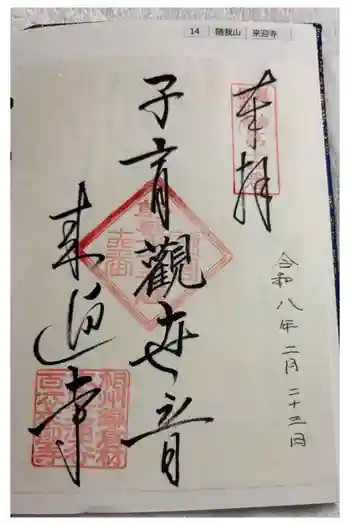 14 随我山 来迎寺
奉拝
令和八年二月二十三日
子育觀世音
来迎寺